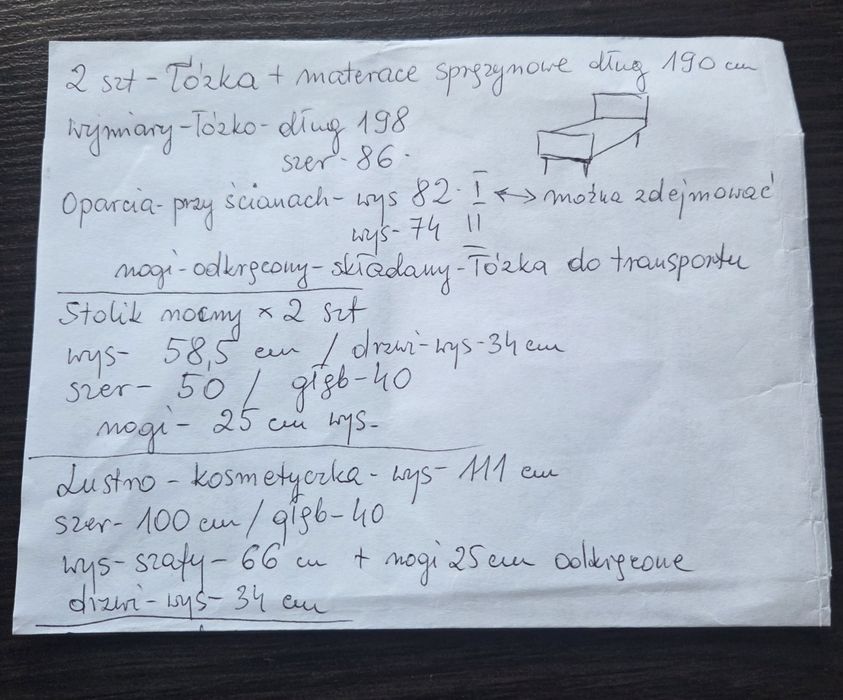 2 szt - Łóżka + materace sprężynowe dług 190 cm
Wymiary - Łóżko - dług 198
szer - 86.
Oparcia - przy ścianach - wys 82. I ↔ można zdejmować
wys - 74 II
nogi - odkręcony - składany - Łóżka do transportu
Stolik nocny × 2 szt
wys - 58,5 cm / drzwi - wys - 34 cm
szer - 50 / głęb - 40
nogi - 25 cm wys -
Lustro - kosmetyczka - wys - 111 cm
szer - 100 cm / głęb - 40
wys - szafy - 66 cm + nogi 25 cm odkręcone
drzwi - wys - 34 cm